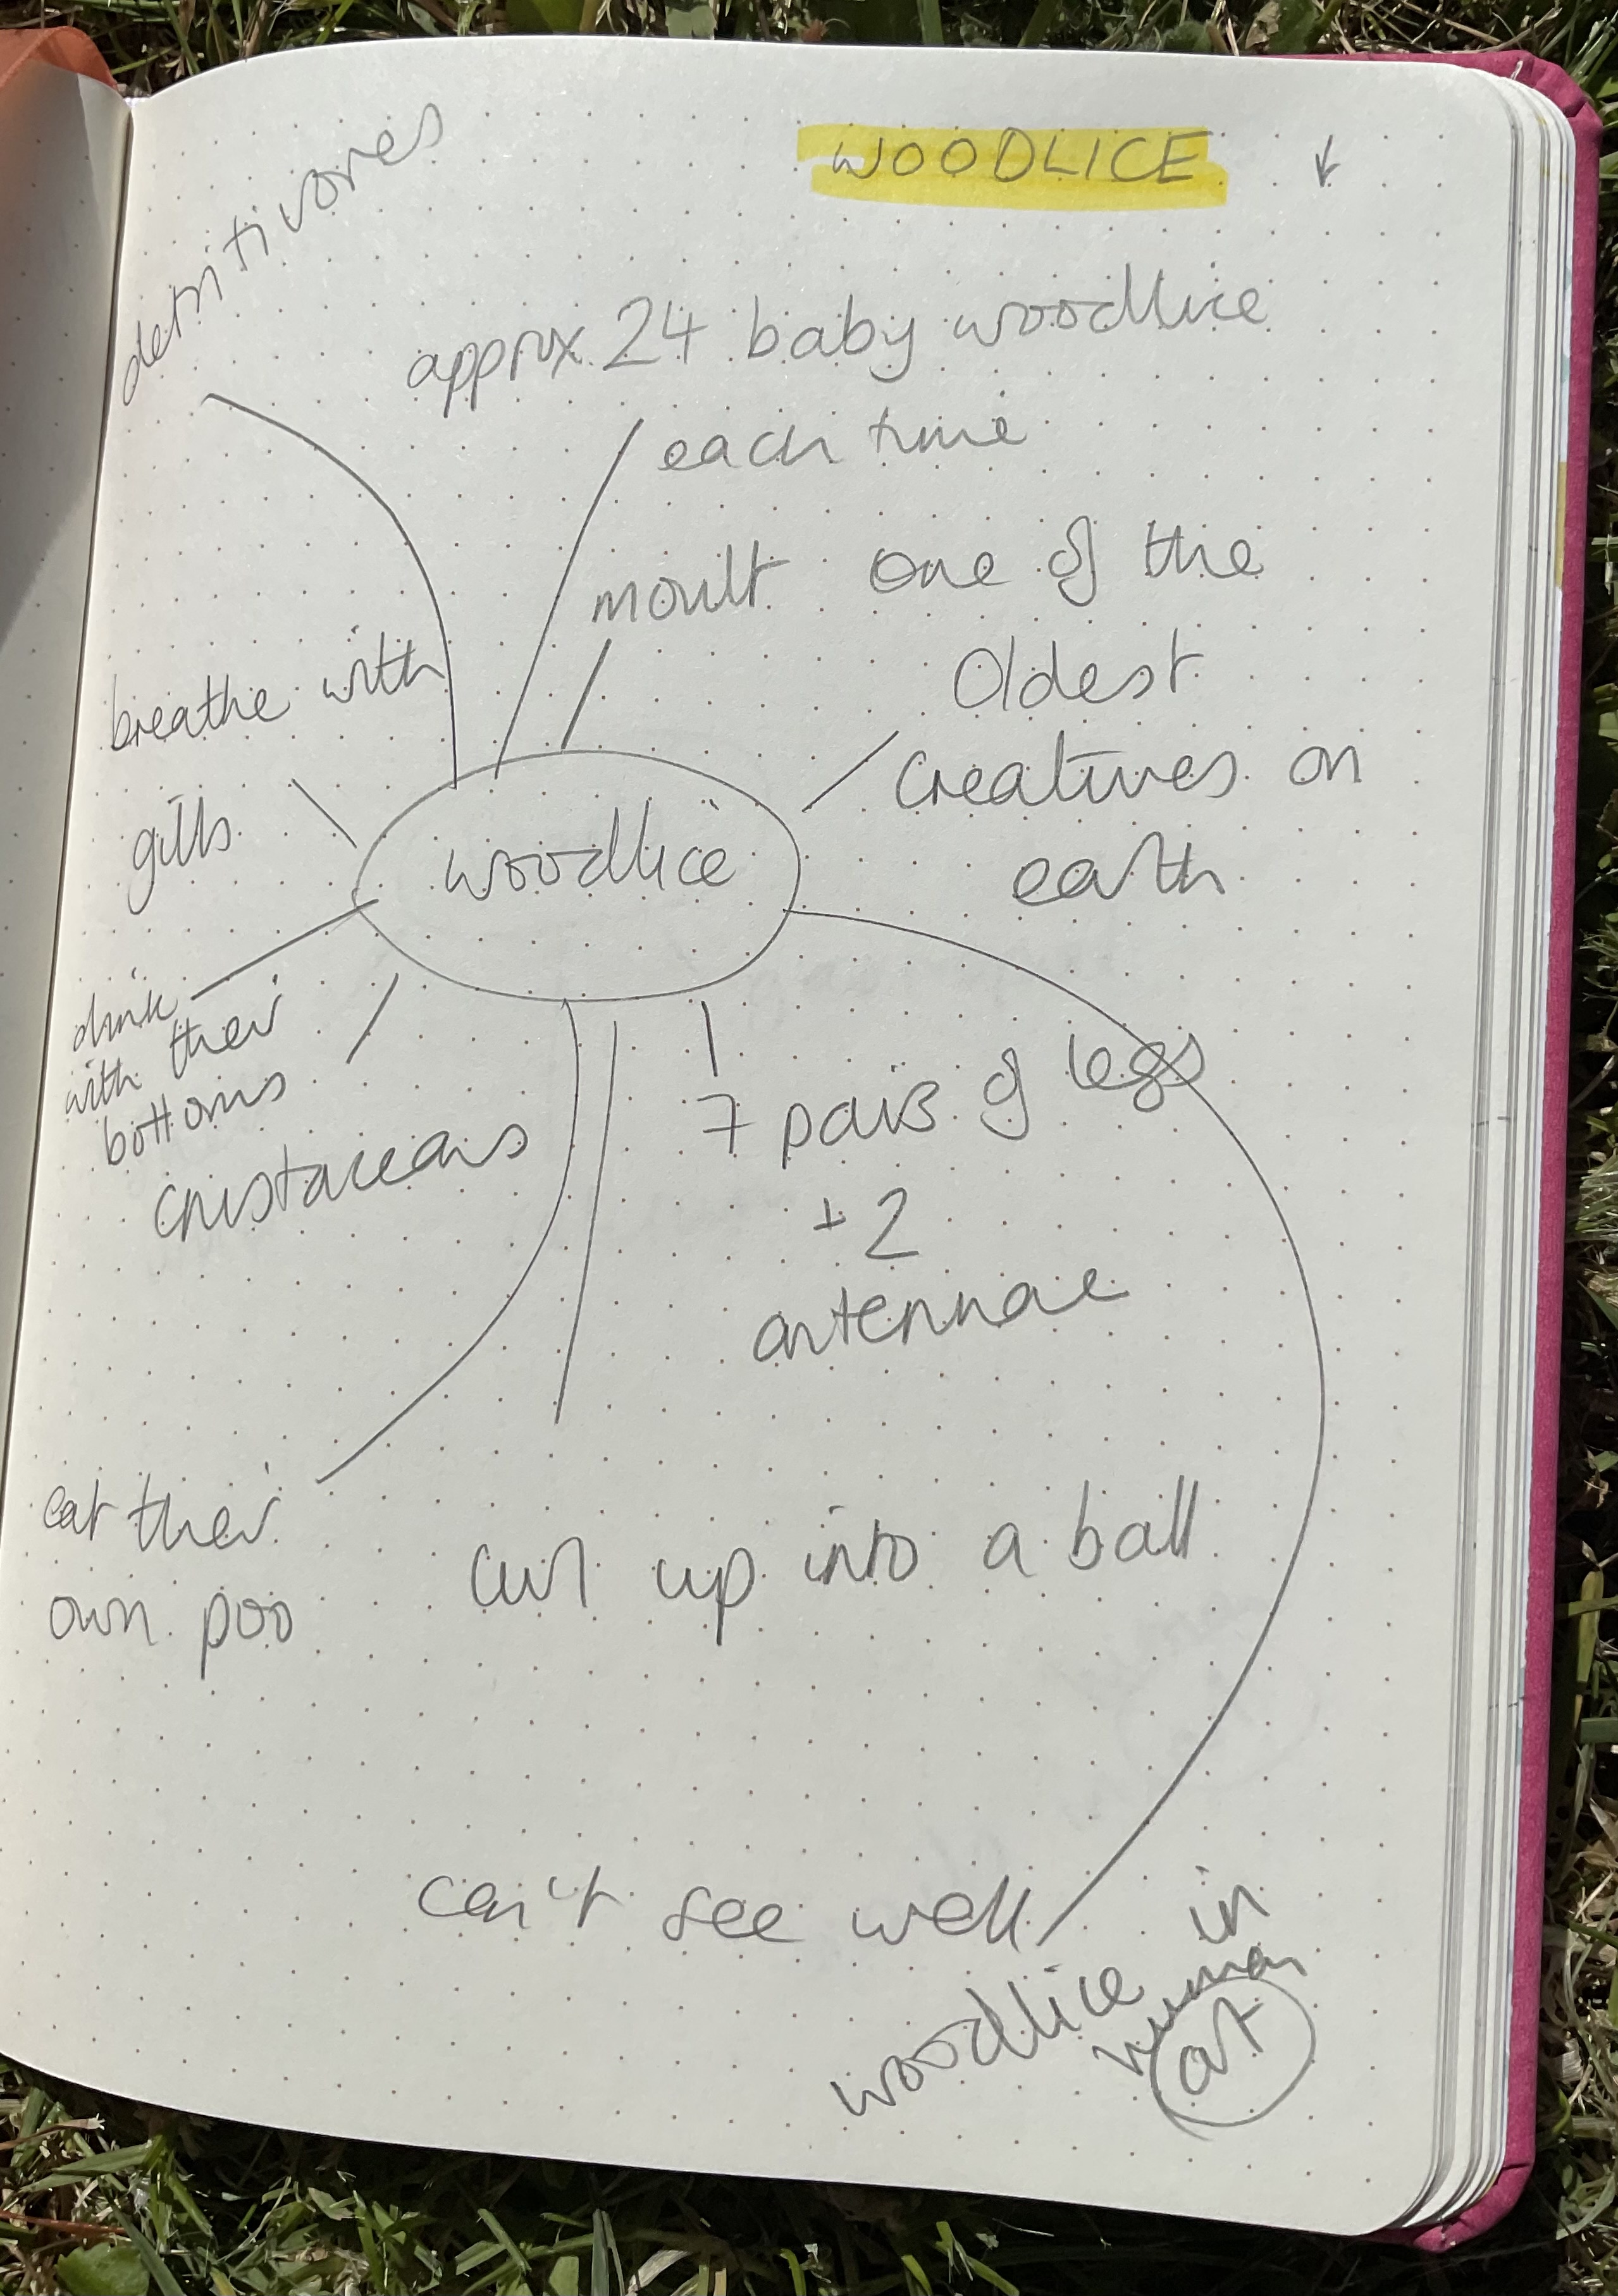 WOODLICE
detritivores
approx 24 baby woodlice
each time
moult
one of the
oldest
creatures on
earth
breathe with
gills
woodlice
drink
with their
bottoms
crustaceans
7 pairs of legs
+ 2
antennae
eat their
own poo
curl up into a ball
can't see well
woodlice in
human
art